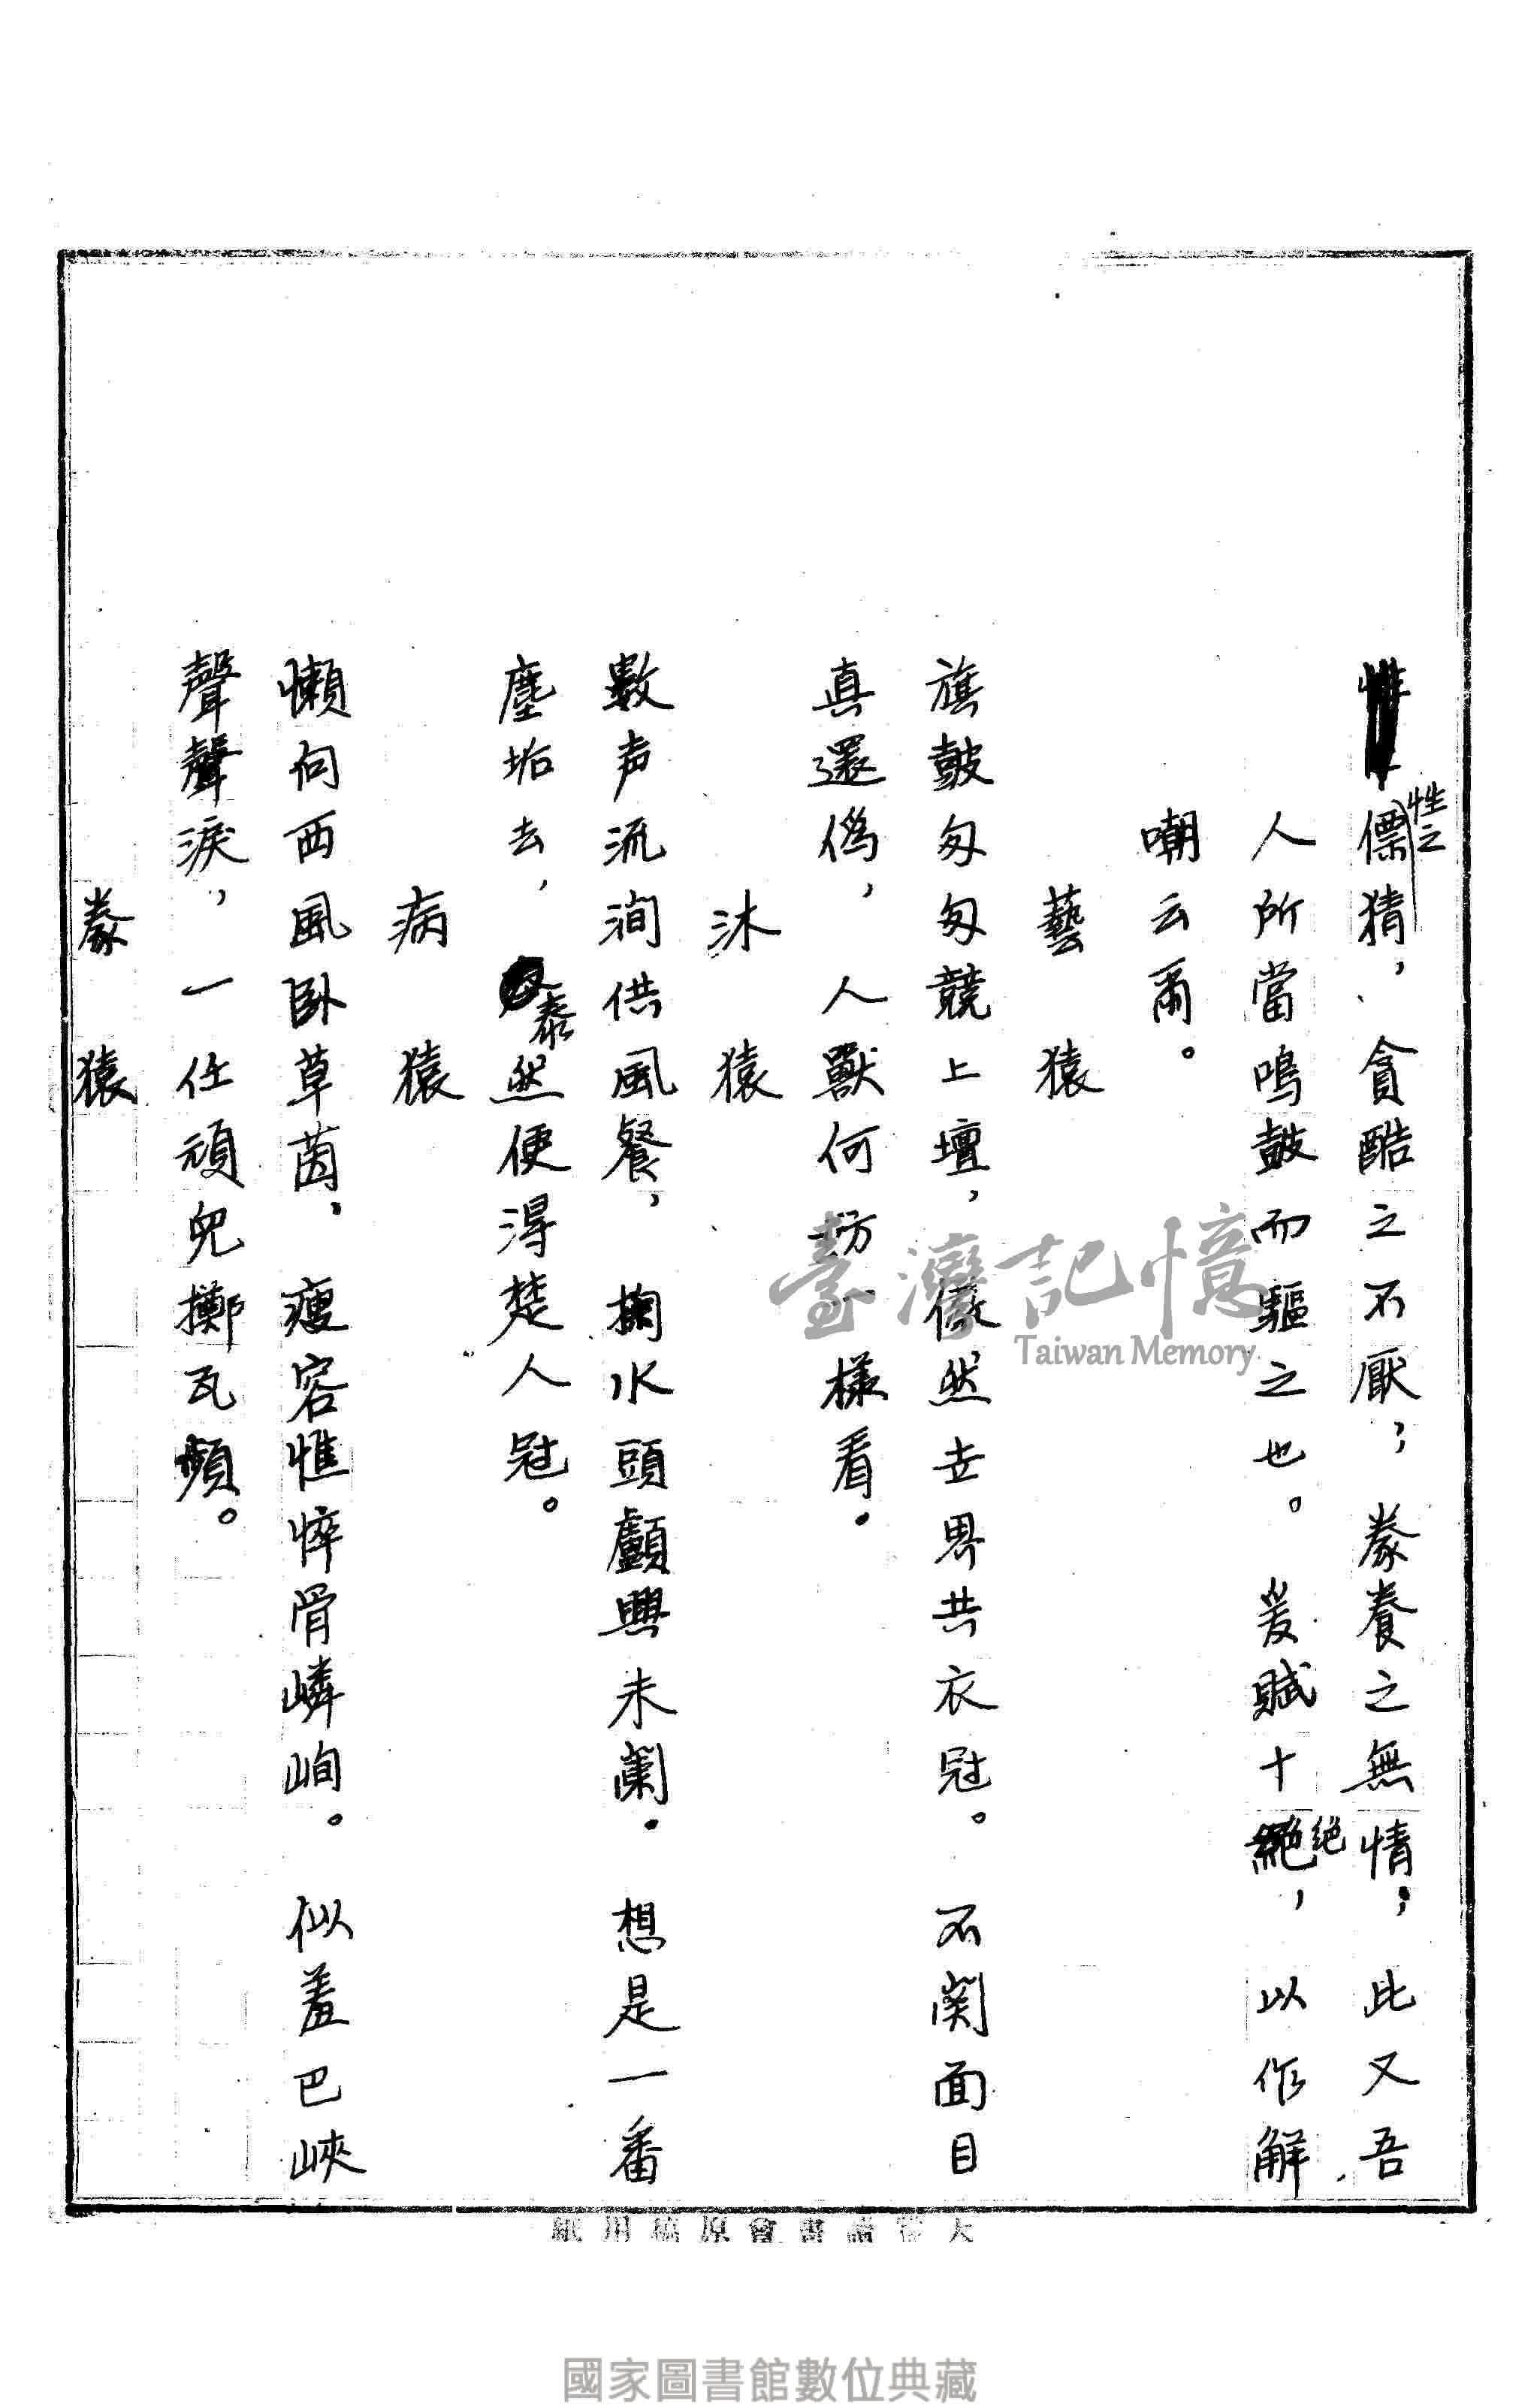 性之僄猜，貪酷之不厭；豢養之無情；此又吾
人所當鳴鼓而驅之也。爰賦十絕，以作解
嘲云爾。
藝猿
旗鼓匆匆競上壇，儼然世界共衣冠。不関面目
真還偽，人獸何妨一樣看。
沐猿
數声流澗供風餐，掬水頭顱興未闌。想是一番
塵垢去，泰然便淂楚人冠。
病猿
懶向西風臥草茵，瘦容憔悴骨嶙峋。似羞巴峽
聲聲淚，一任頑兒擲瓦頻。
豢猿
讀書會原稿用紙
臺灣記憶
Taiwan Memory
國家圖書館數位典藏